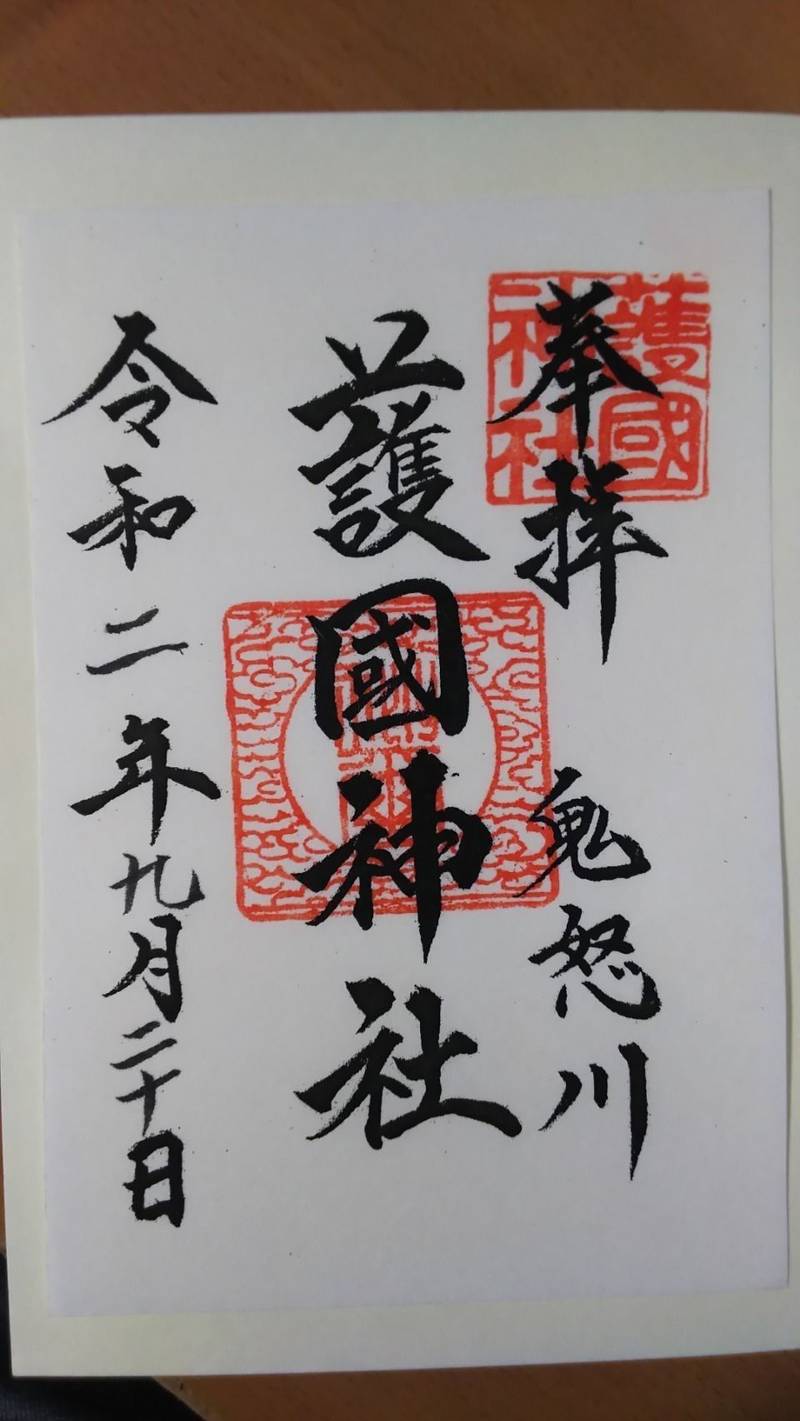 奉拝
鬼怒川
護國神社
令和二年九月二十日
護國
神社